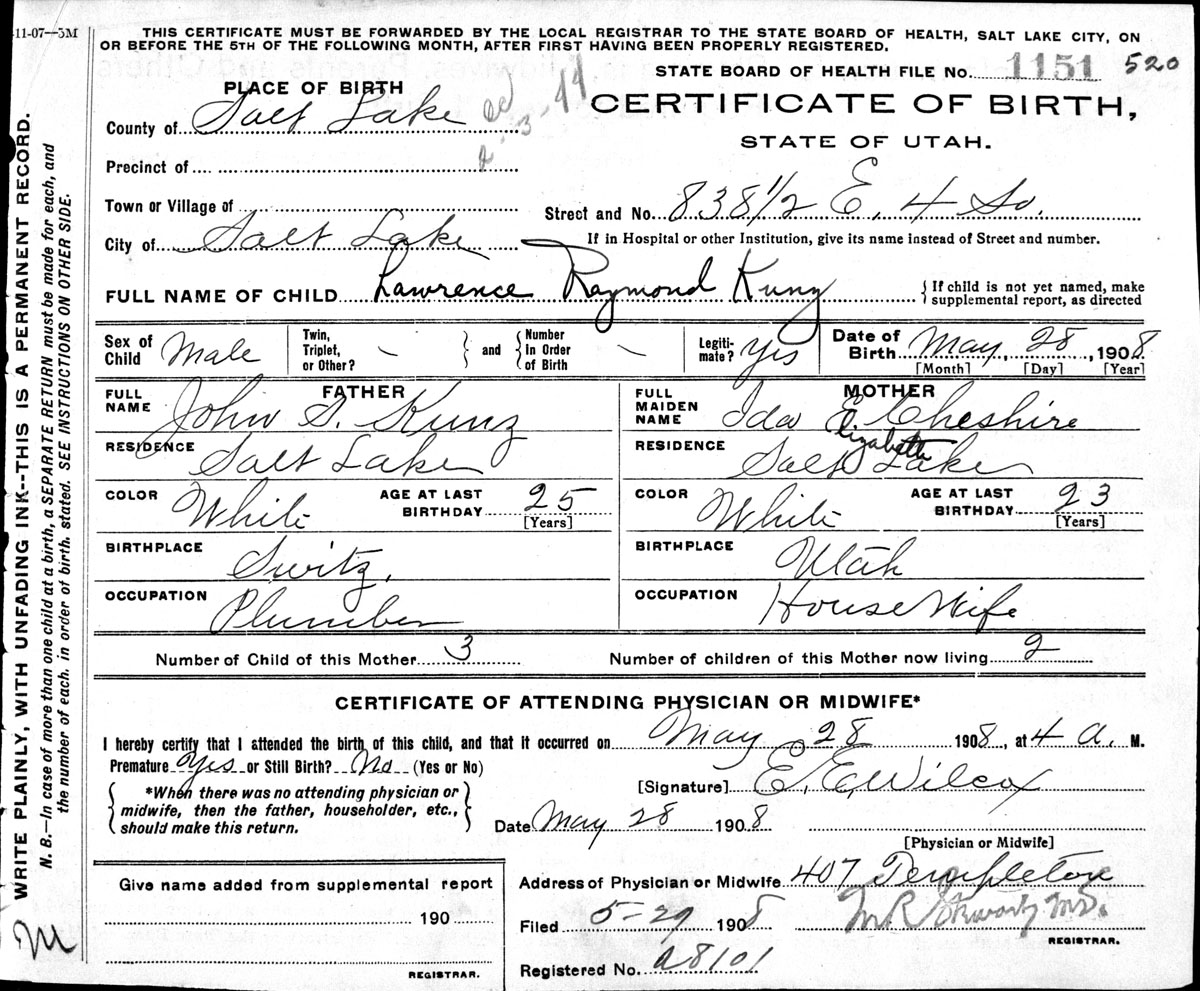 11-07—5M
THIS CERTIFICATE MUST BE FORWARDED BY THE LOCAL REGISTRAR TO THE STATE BOARD OF HEALTH, SALT LAKE CITY, ON
OR BEFORE THE 5TH OF THE FOLLOWING MONTH, AFTER FIRST HAVING BEEN PROPERLY REGISTERED.
STATE BOARD OF HEALTH FILE No. 1151 520
PLACE OF BIRTH
CERTIFICATE OF BIRTH,
STATE OF UTAH.
County of Salt Lake
Precinct of
Town or Village of
Street and No. 838 1/2 E. 4 So.
City of Salt Lake
If in Hospital or other Institution, give its name instead of Street and number.
FULL NAME OF CHILD Lawrence Raymond Kunz
{ If child is not yet named, make
supplemental report, as directed
Sex of Child Male
Twin, Triplet, or Other? — } and { Number In Order of Birth —
Legiti-mate? yes
Date of Birth May, 28, 1908
[Month] [Day] [Year]
FATHER
FULL NAME John S. Kunz
RESIDENCE Salt Lake
COLOR White AGE AT LAST BIRTHDAY 25 [Years]
BIRTHPLACE Switz.
OCCUPATION Plumber
MOTHER
FULL MAIDEN NAME Ida E Cheshire
Elizabeth
RESIDENCE Salt Lake
COLOR White AGE AT LAST BIRTHDAY 23 [Years]
BIRTHPLACE Utah
OCCUPATION House Wife
Number of Child of this Mother 3 Number of children of this Mother now living 2
CERTIFICATE OF ATTENDING PHYSICIAN OR MIDWIFE*
I hereby certify that I attended the birth of this child, and that it occurred on May 28 1908, at 4 a. M.
Premature Yes or Still Birth? No (Yes or No)
[Signature] E. E. Wilcox
{ *When there was no attending physician or
midwife, then the father, householder, etc.,
should make this return. }
Date May 28 1908
[Physician or Midwife]
Give name added from supplemental report
190
REGISTRAR.
Address of Physician or Midwife 407 Templeton
Filed 5-29 1908
M R Stewart MD.
REGISTRAR.
Registered No. a8101
WRITE PLAINLY, WITH UNFADING INK--THIS IS A PERMANENT RECORD.
N. B.—In case of more than one child at a birth, a SEPARATE RETURN must be made for each, and
the number of each, in order of birth, stated. SEE INSTRUCTIONS ON OTHER SIDE.
M